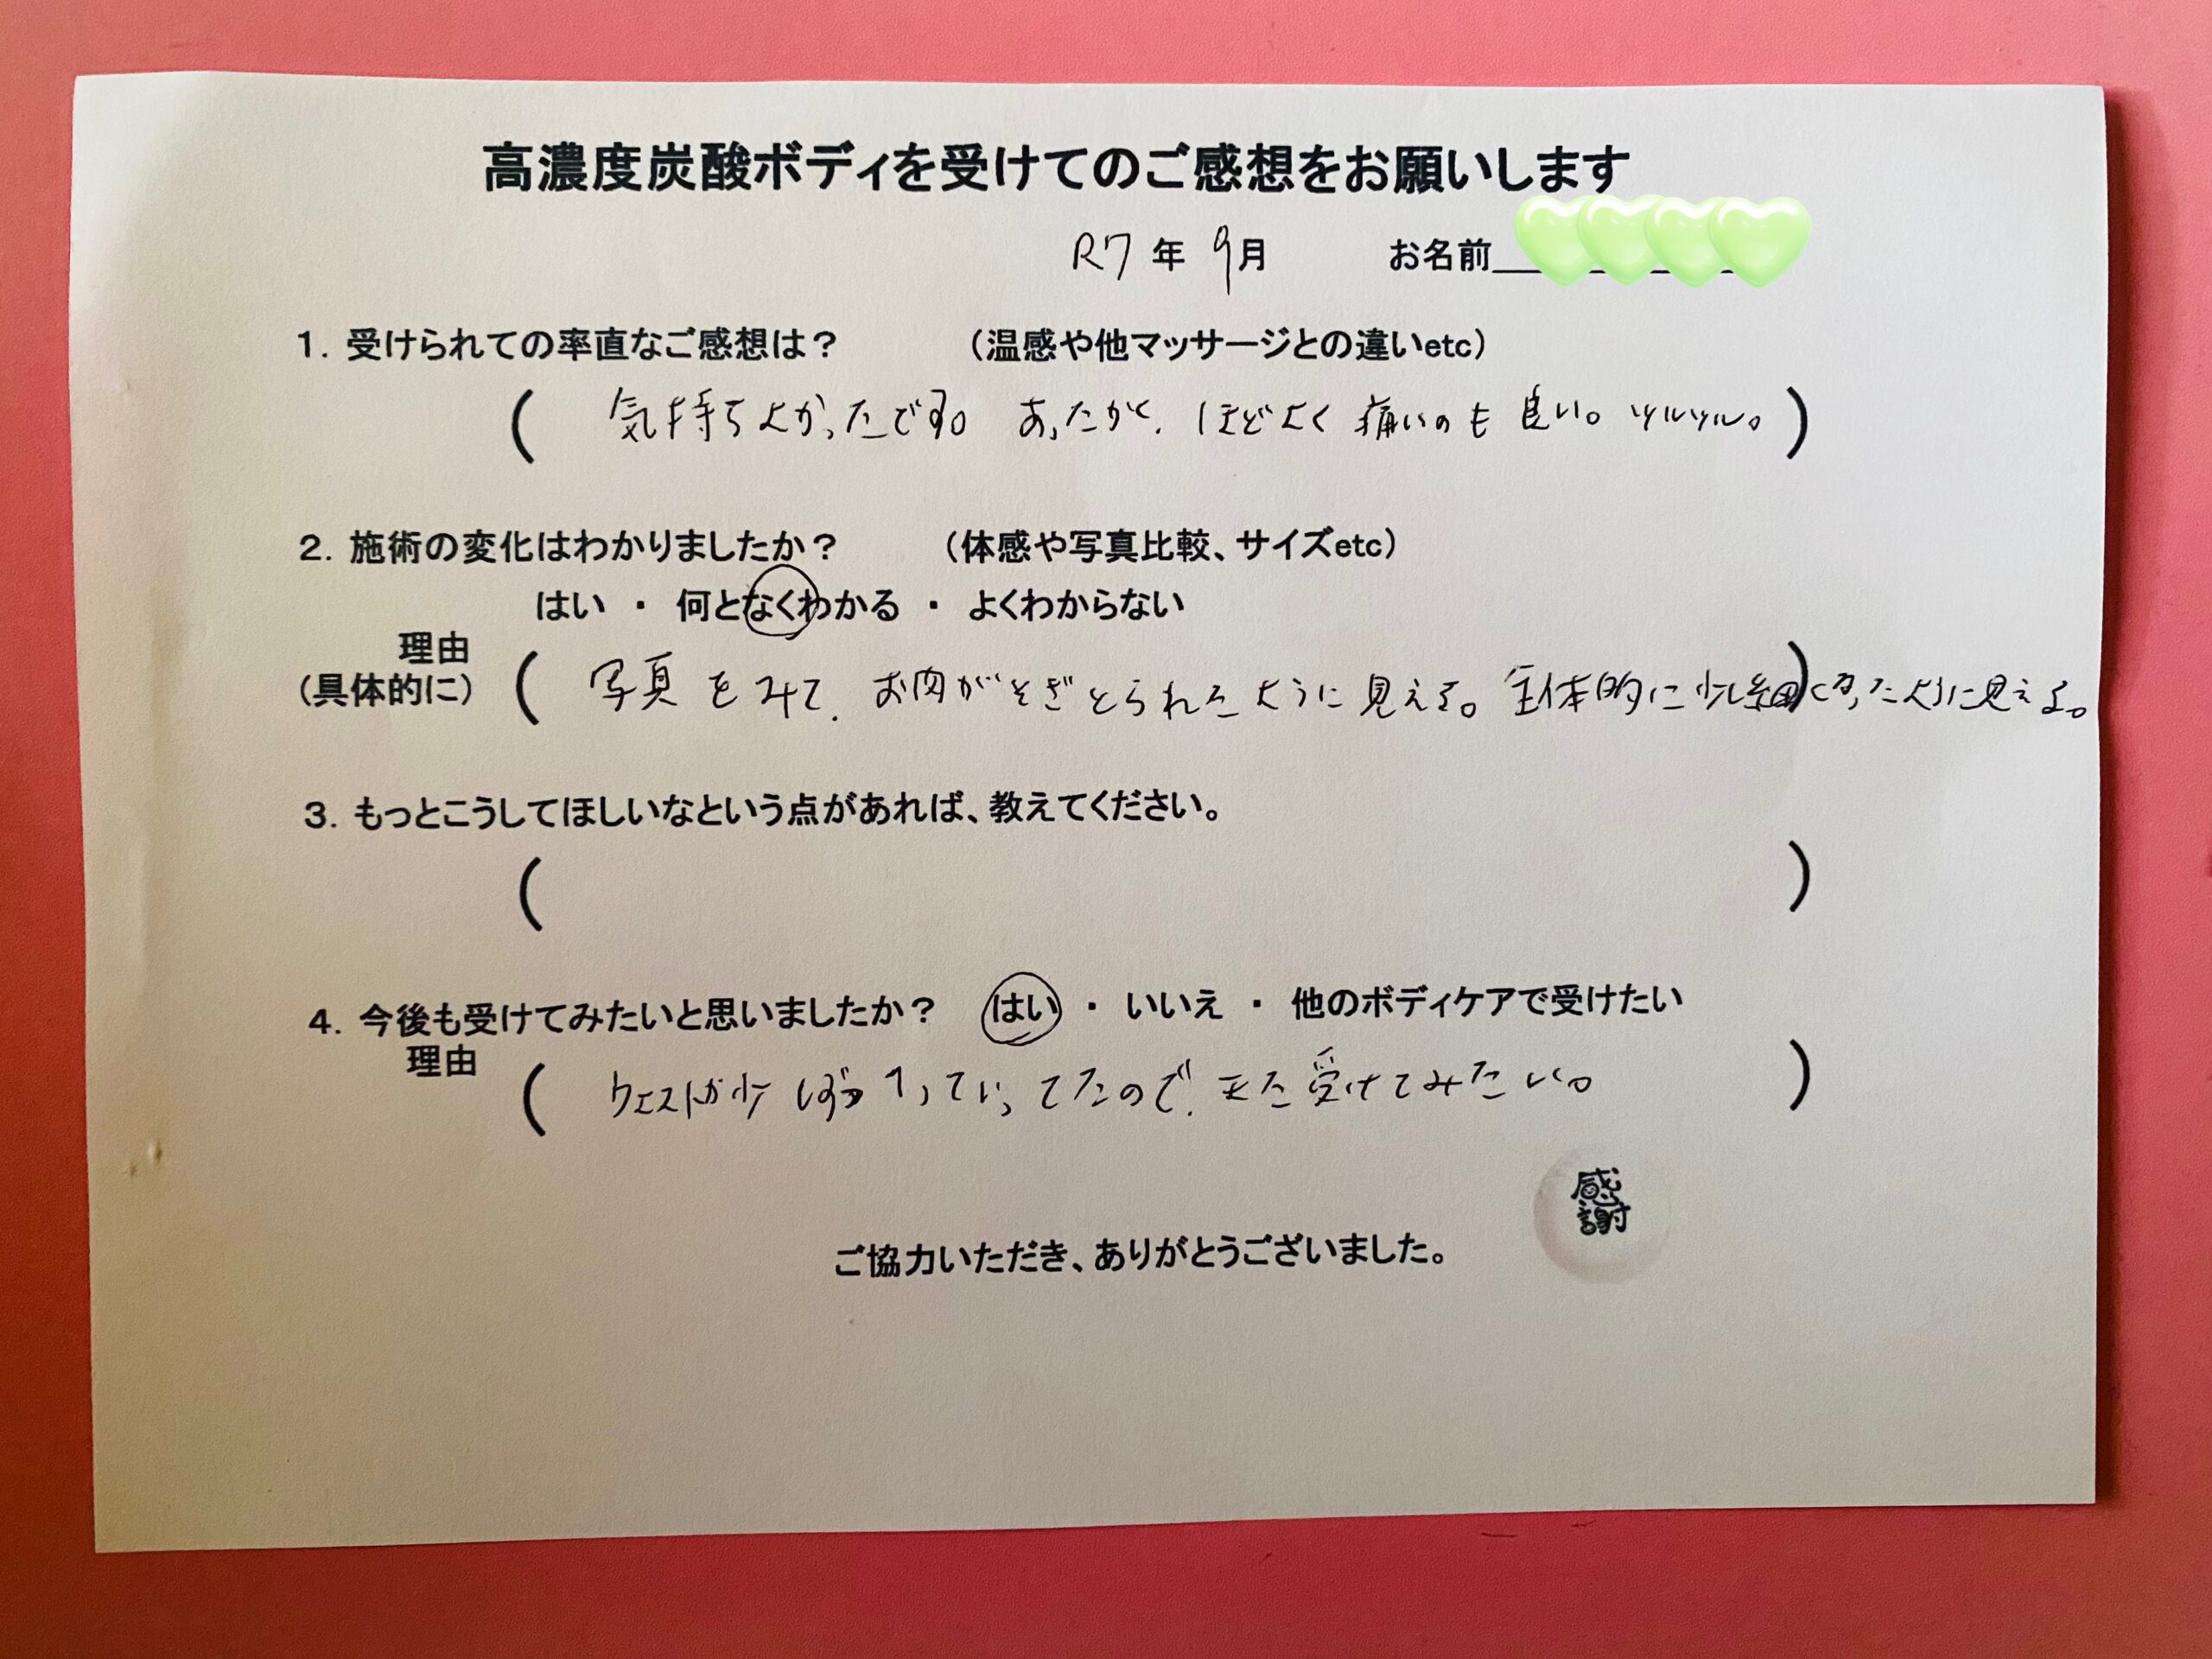 高濃度炭酸ボディを受けてのご感想をお願いします
R7 年 9月 お名前
1. 受けられての率直なご感想は？ （温感や他マッサージとの違いetc）
( 気持ちよかったです。 あったかく、ほどよく 痛いのも 良い。 ツルツル。 )
2. 施術の変化はわかりましたか？ （体感や写真比較、サイズetc）
はい ・ 何となくわかる ・ よくわからない
理由
（具体的に） ( 写真をみて、お肉がそぎとられたように見える。全体的に少し細くなったように見える。 )
3. もっとこうしてほしいなという点があれば、教えてください。
( )
4. 今後も受けてみたいと思いましたか？ はい ・ いいえ ・ 他のボディケアで受けたい
理由
( ウエストが少し てたので、また受けてみたい。 )
感謝
ご協力いただき、ありがとうございました。